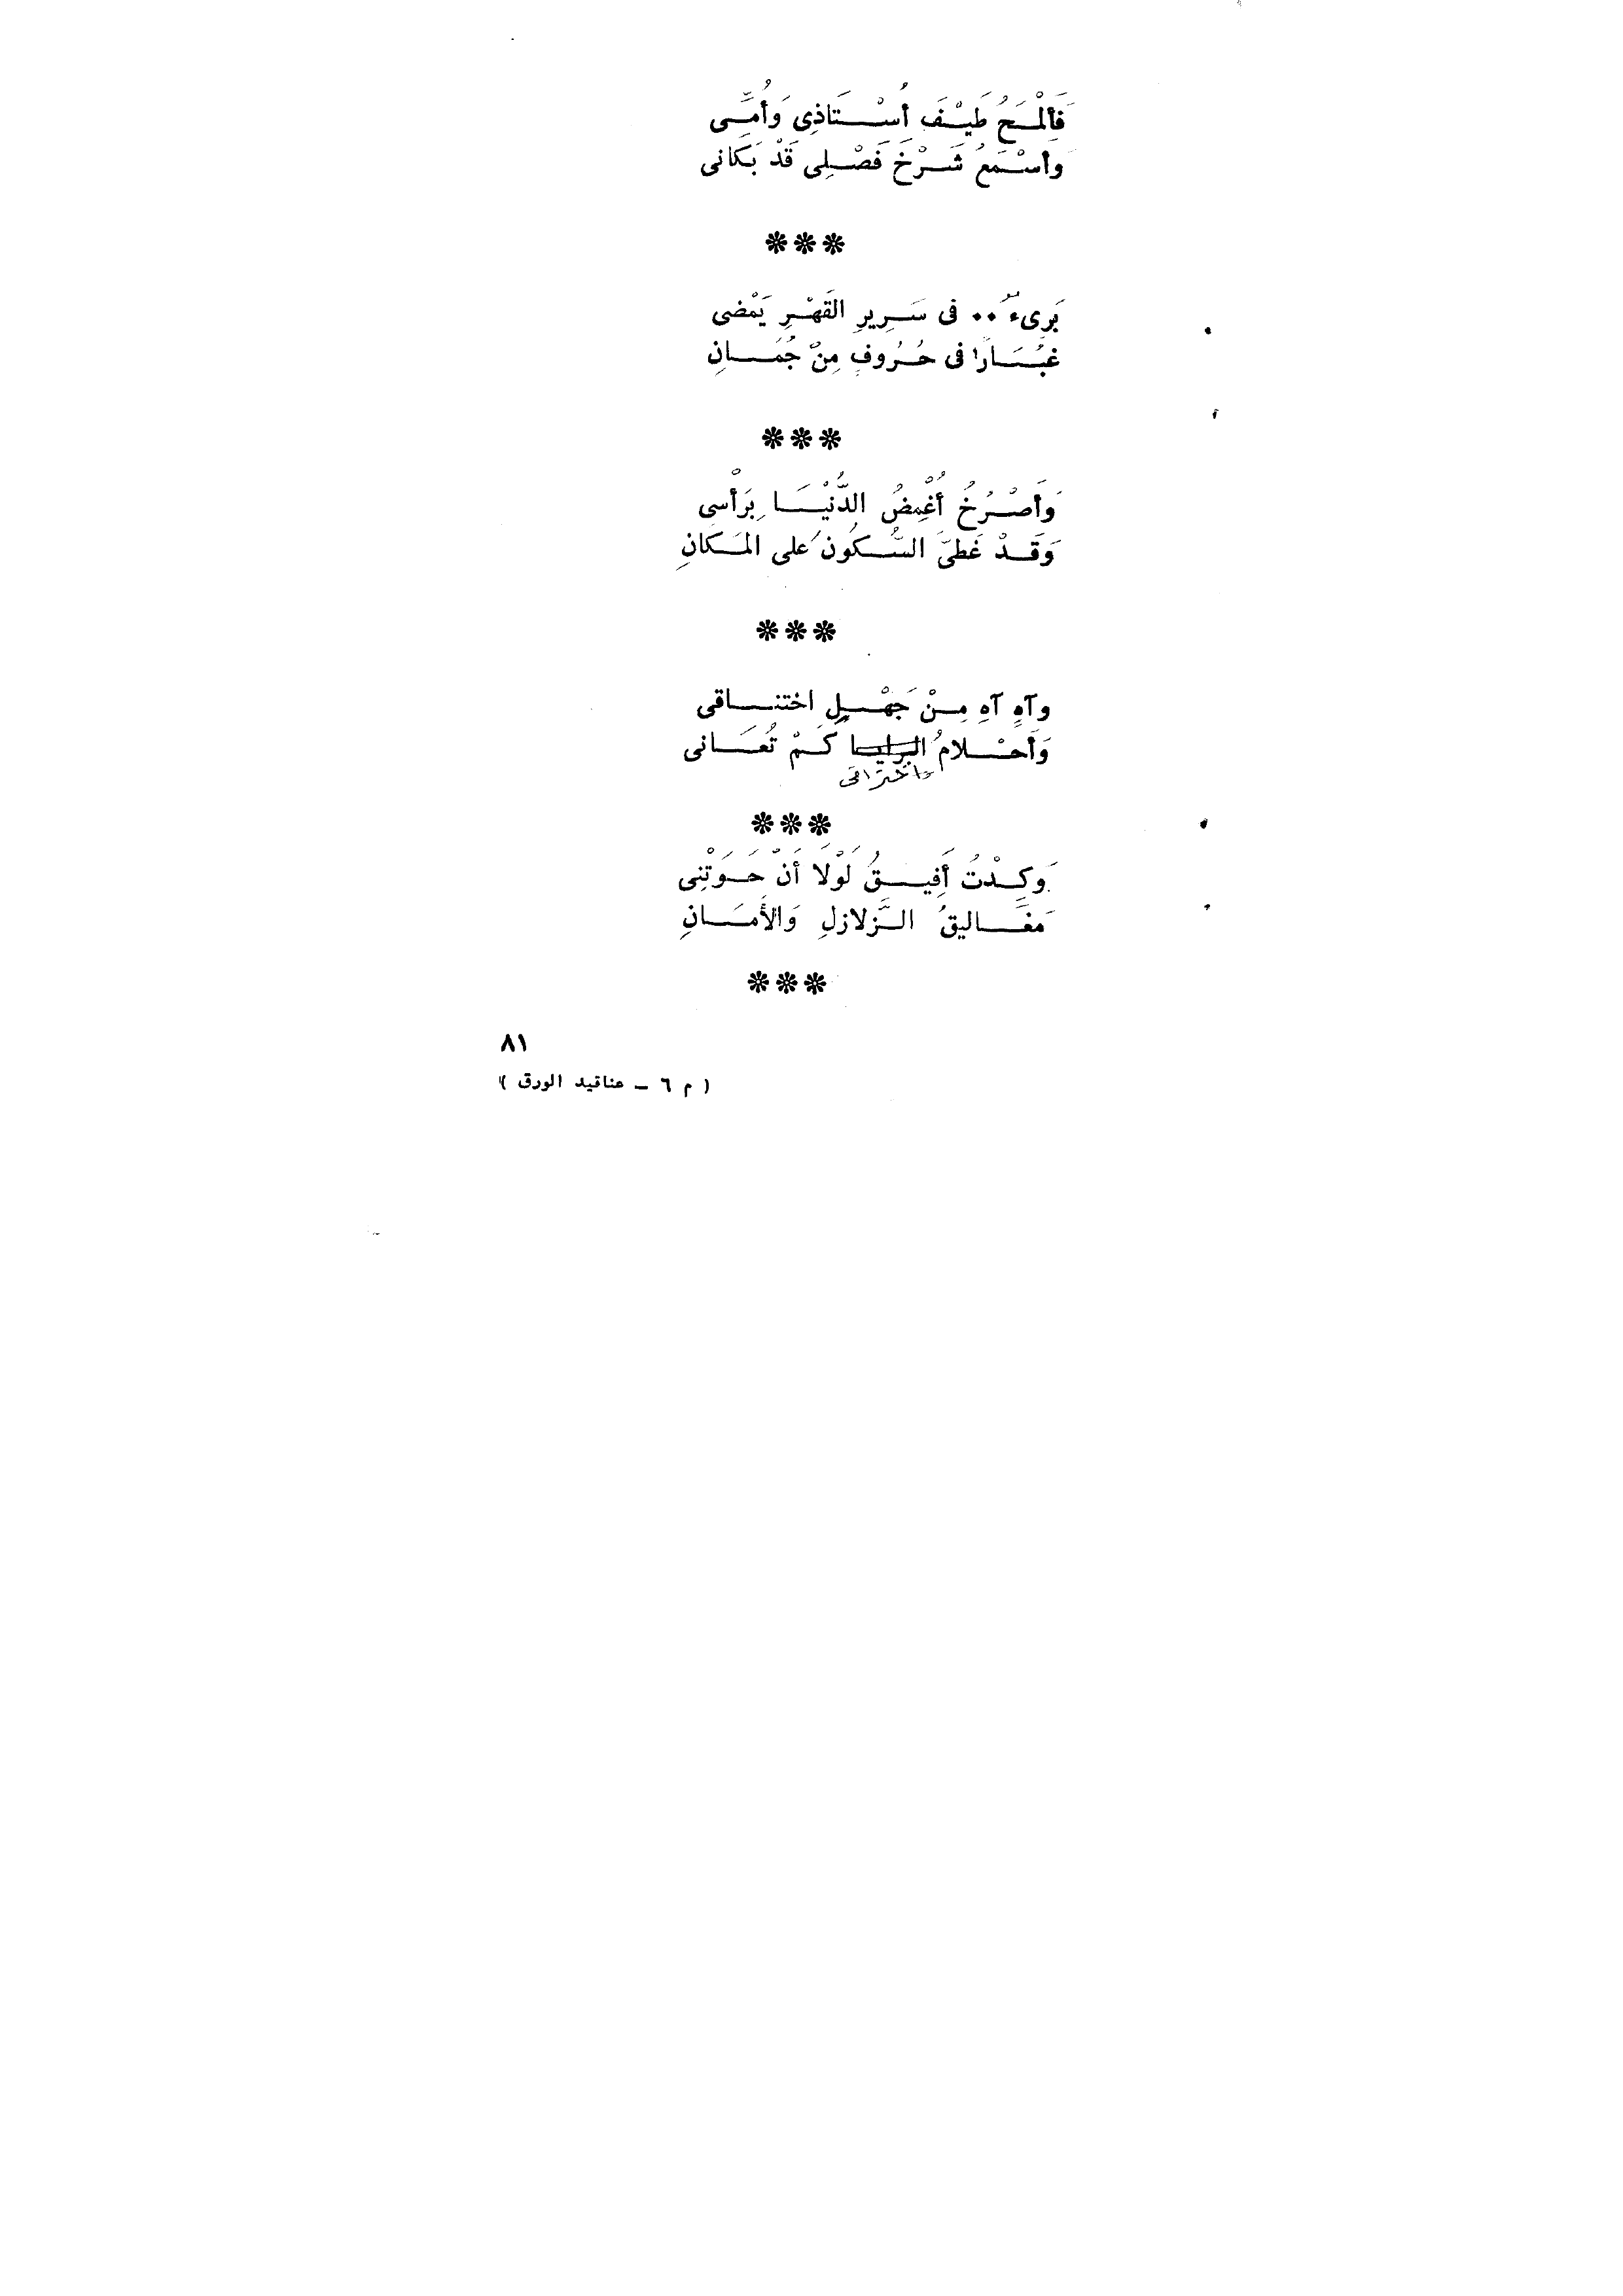 فَأَلْمَحُ طَيْفَ أُسْتَاذِى وَأُمِّى
وَأَسْمَعُ شَرْخَ فَصْلِى قَدْ بَكَانى
***
بَرِىءٌ .. فى سَرِيرِ القَهْرِ يَمْضى
غُبَارًا فى حُرُوفٍ مِنْ جُمَانِ
***
وَأَصْرُخُ أُغْمِضُ الدُّنْيَا بِرَأْسى
وَقَدْ غَطىَّ السُّكُونُ عَلى المَكَانِ
***
وآهٍ آهِ مِنْ جَهْلِ اختناقى
وَأَحْلامُ البرايا كَمْ تُعَانى
واحتراقى
***
وَكِدْتُ أَفِيقُ لَوْلا أَنْ حَوَتْنِى
مَغَاليقُ الزَّلازلِ وَالأَمَانِ
***
٨١
( م ٦ ــ عناقيد الورق )